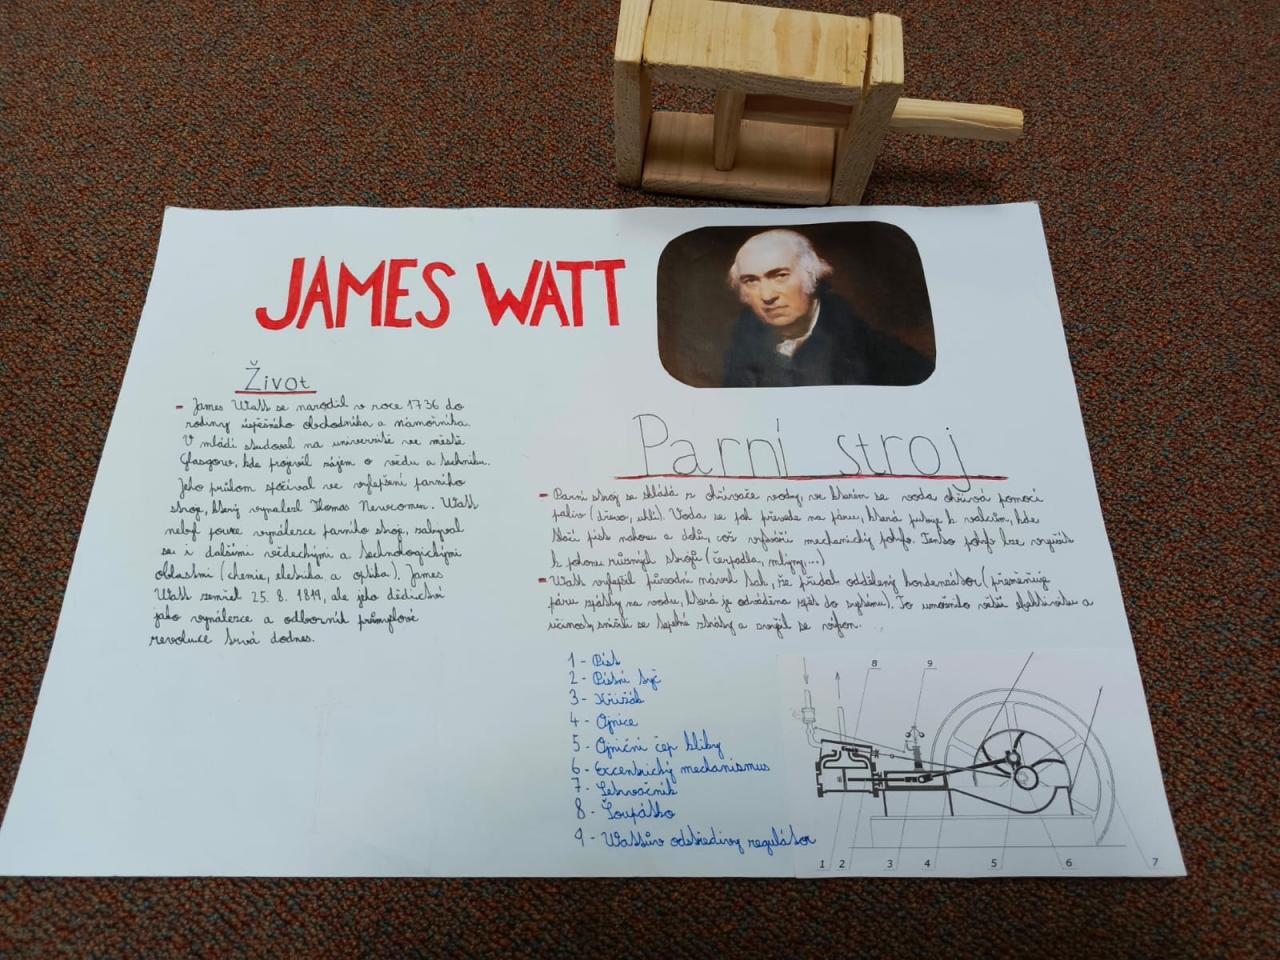 JAMES WATT
Život
- James Watt se narodil v roce 1736 do
rodiny úspěšného obchodníka a námořníka.
V mládí studoval na univerzitě ve městě
Glasgow, kde projevil zájem o vědu a techniku.
Jeho průlom spočíval ve vylepšení parního
stroje, který vynalezl Thomas Newcomen. Watt
nebyl pouze vynálezce parního stroje, zabýval
se i dalšími vědeckými a technologickými
oblastmi (chemie, eletrika a optika). James
Watt zemřel 25. 8. 1819, ale jeho dědictví
jako vynálezce a odborník průmyslové
revoluce trvá dodnes.
Parní stroj
- Parní stroj se skládá z ohřívače vody, ve kterém se voda ohřívá pomocí
paliv (dřevo, uhlí). Voda se pak převede na páru, která putuje k válcům, kde
tlačí píst nahoru a dolů, což vytváří mechanický pohyb. Tento pohyb lze využít
k pohonu různých strojů (čerpadla, mlýny,...)
- Watt vylepšil původní návrh tak, že přidal oddělený kondenzátor (přeměňuje
páru zpátky na vodu, která je odváděna zpět do systému). To umožnilo větší efektivitu a
účinnost, snížili se tepelné ztráty a zvýšil se výkon.
1 - Píst
2 - Pístní tyč
3 - Křižák
4 - Ojnice
5 - Ojniční čep kliky
6 - Excentrický mechanismus
7 - Setrvačník
8 - Šoupátko
9 - Wattův odstředivý regulátor
8 9
1 2 3 4 5 6 7